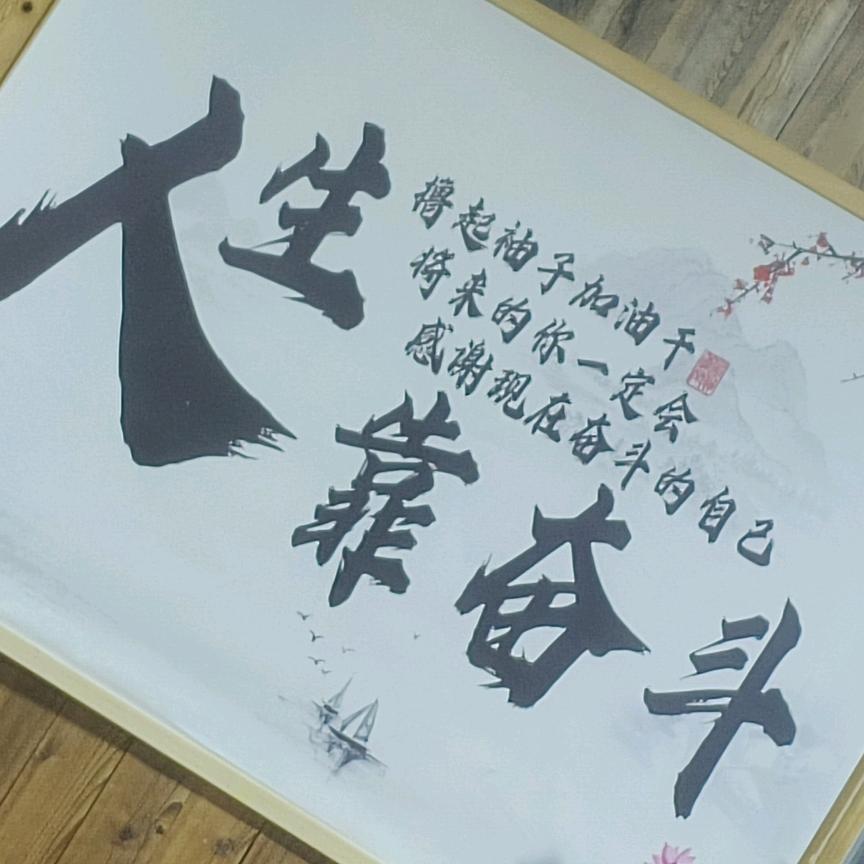 人生
撸起袖子加油干
将来的你一定会
感谢现在奋斗的自己
靠奋斗